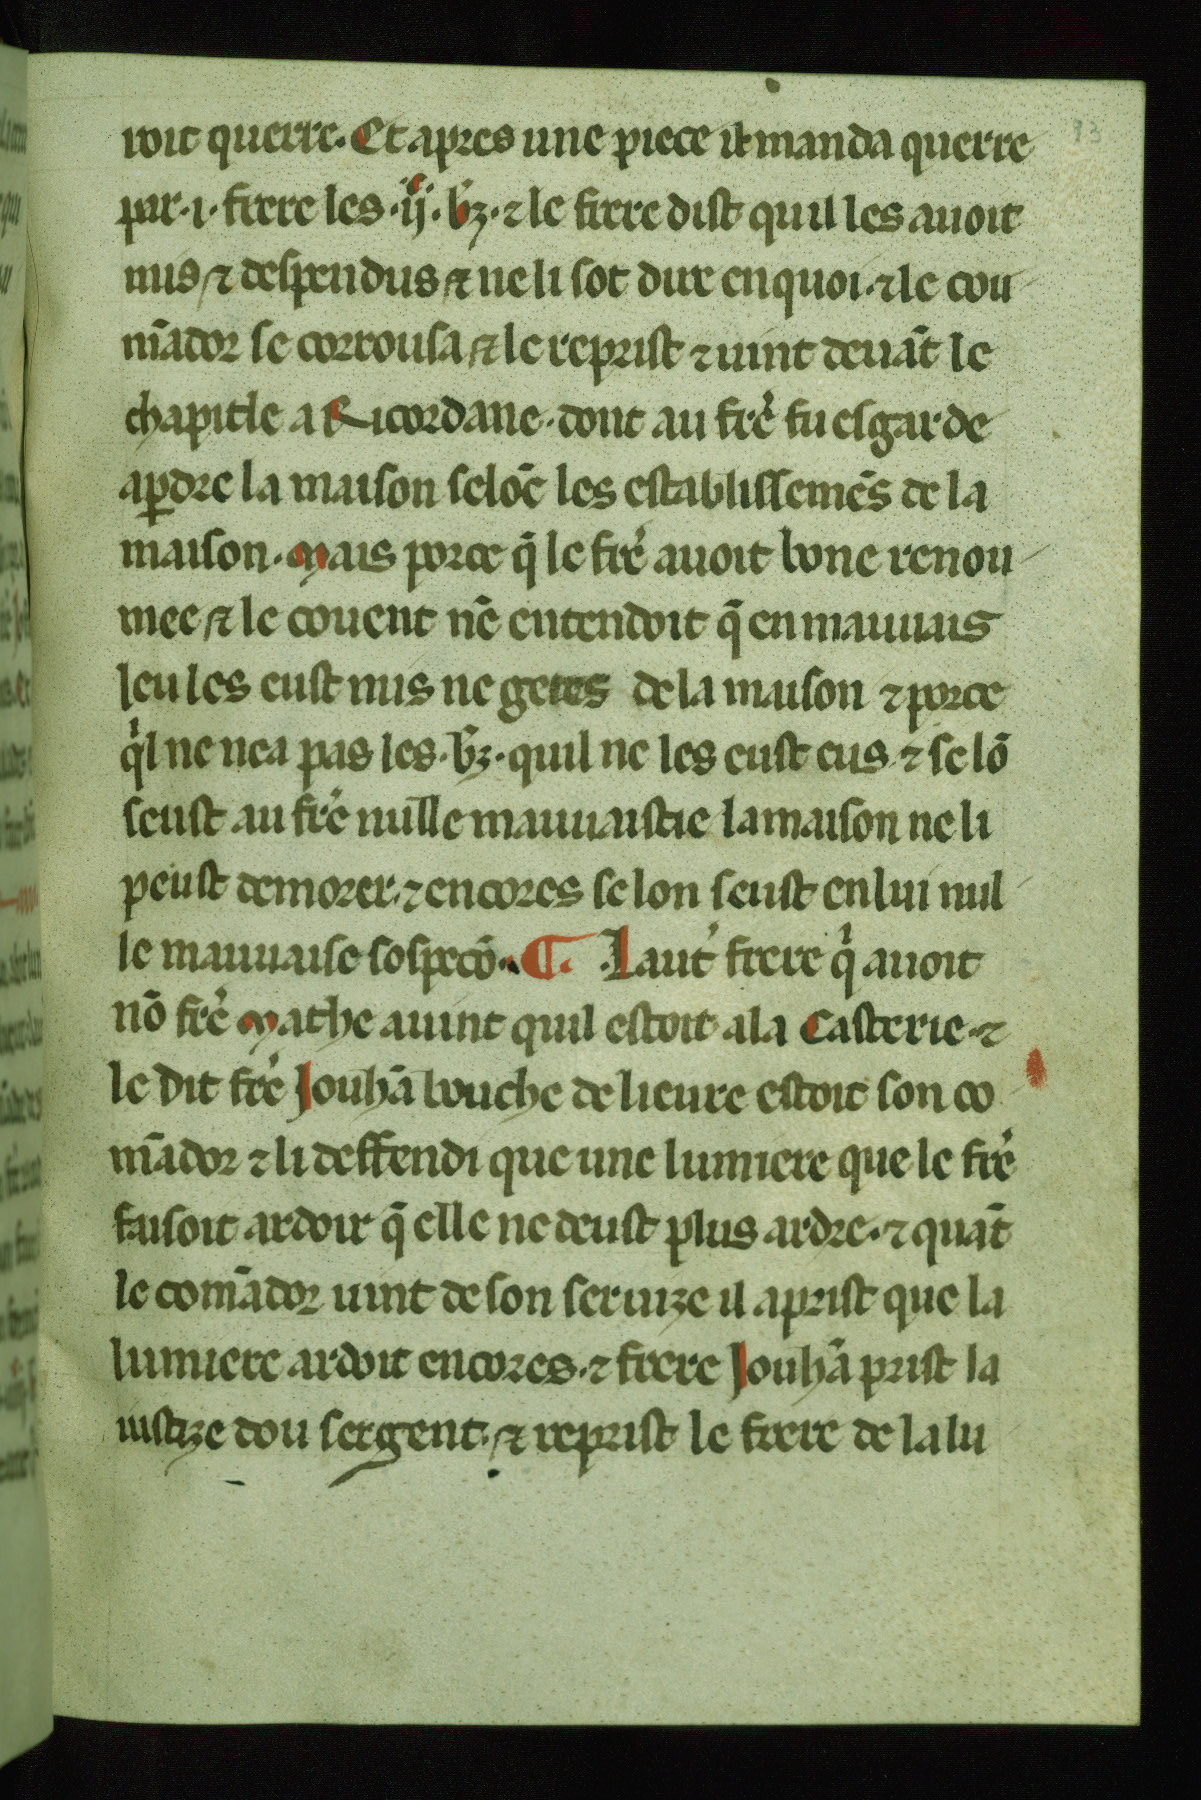 roit querre. Et apres une piece il manda querre
par .i. frere les .ij. bz. ⁊ le frere dist quil les auoit
mis ⁊ despendus ⁊ ne li sot dire en quoi. ⁊ le cou
mādor se corrousa ⁊ le reprist ⁊ uint deuāt le
chapitle a Ricordane. dont au frē fu esgarde
a ꝑdre la maison selōc les establissemēs de la
maison. Mais porce q̄ le frē auoit bone renou
mee ⁊ le couent nē entendoit q̄ en mauuais
leu les eust mis ne getes de la maison ⁊ porce
qͥl ne nea pas les .bz. quil ne les eust eus. ⁊ se lō
seust au frē nulle mauuaistie la maison ne li
peust demorer. ⁊ encores se lon seust en lui nul
le mauuaise sospecō. ¶ Laut' frere qͥ auoit
nō frē Mathe auint quil estoit a la Casterie. ⁊
le dit frē Jouhā bouche de lieure estoit son co
mādor ⁊ li deffendi que une lumiere que le frē
faisoit ardoir q̄ elle ne deust plus ardre. ⁊ quāt
le comādor uint de son seruize il aprist que la
lumiere ardoit encores. ⁊ frere Jouhā prist la
iustize dou sergent. ⁊ reprist le frere de la lu
93